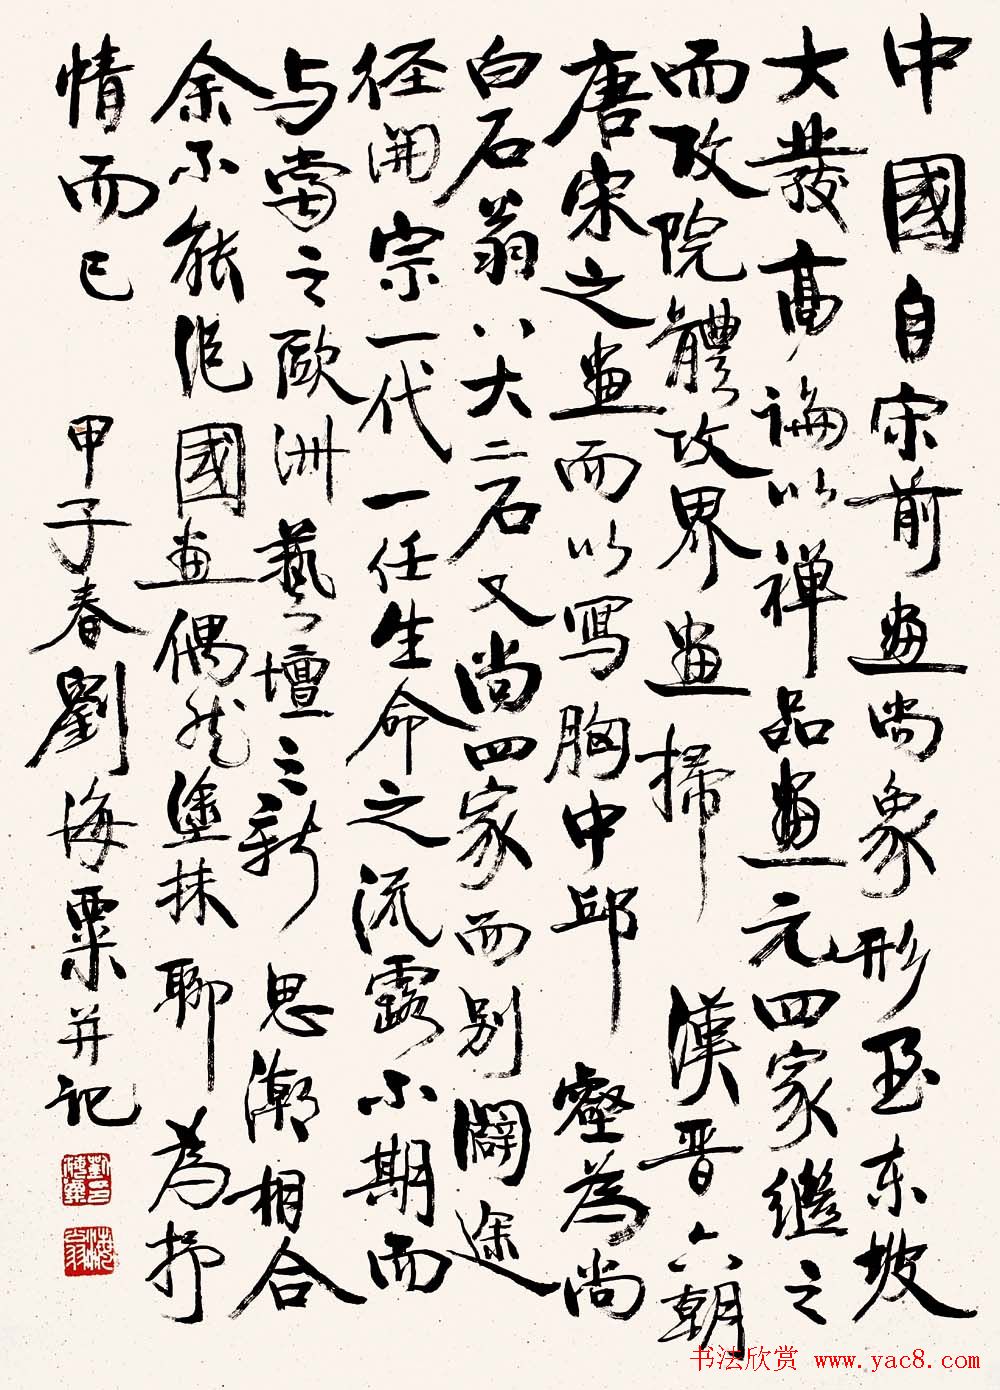 中國自宋前画尚象形至东坡
大發高論以禅品画元四家繼之
而攻院體攻界画掃漢晋六朝
唐宋之画而以寫胸中邱壑為尚
白石翁八大二石又尚四家而别闢途
径開宗一代一任生命之流露不期而
与當之歐洲藝壇之新思潮相合
余不能作國画偶然塗抹聊為抒
情而已 甲子春劉海粟并记
書法欣赏 www.yac8.com